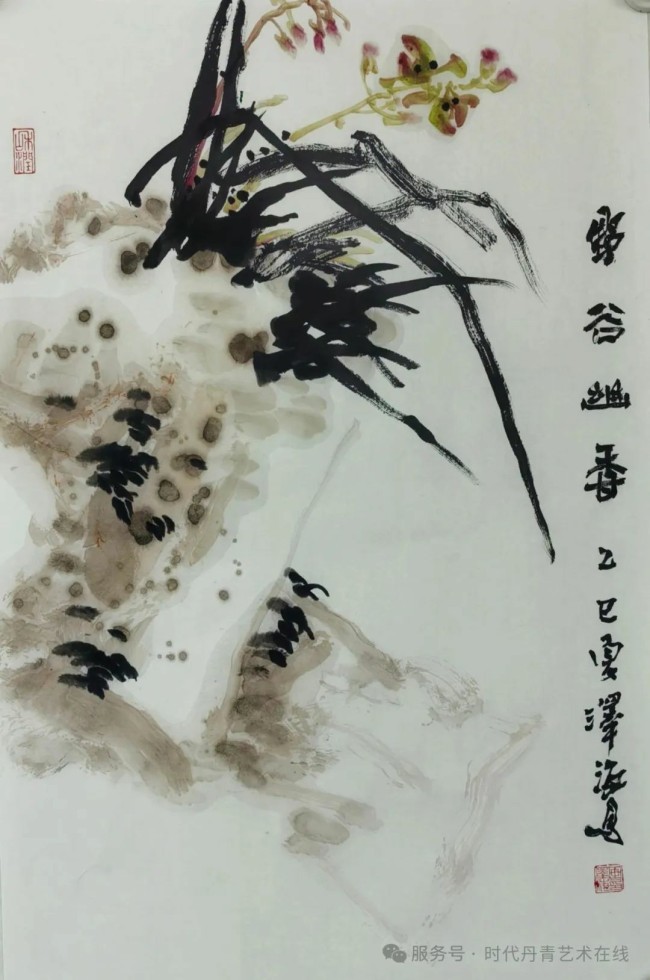 野谷幽香 乙巳夏澤海
服务号·时代丹青艺术在线